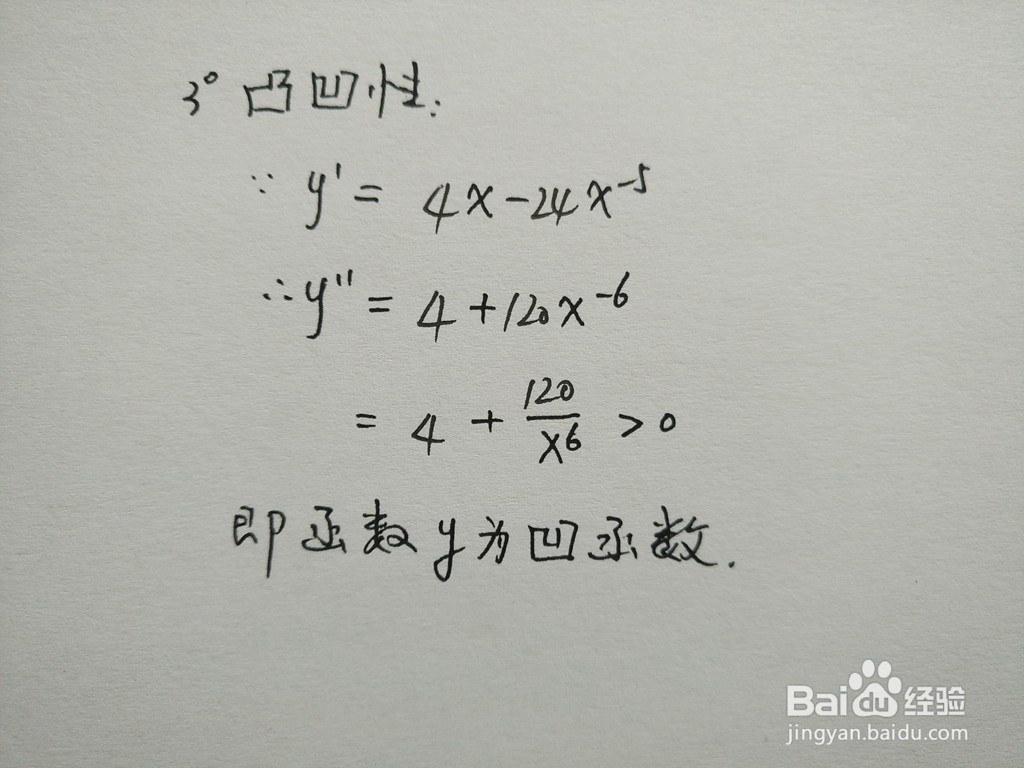 3° 凸凹性:
∵ y' = 4x-24x⁻⁵
∴ y'' = 4+120x⁻⁶
= 4 + 120/x⁶ > 0
即函数y为凹函数.
Bai du 经验
jingyan.baidu.com